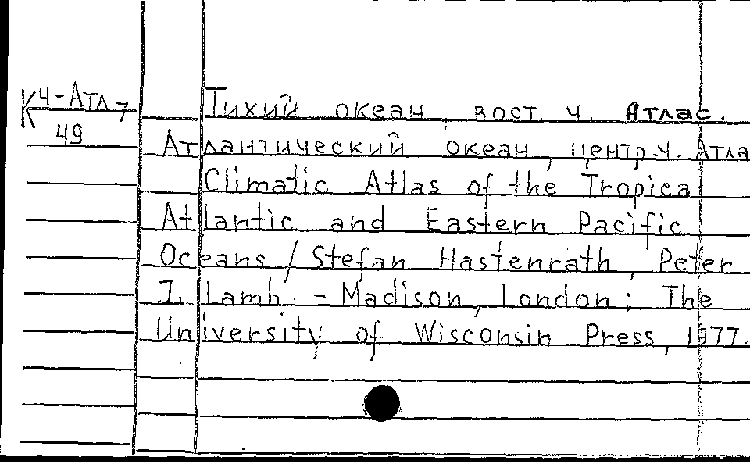 К 4-Атл-7
49
Тихий океан, вост. ч. Атлас.
Атлантический океан, центр. ч. Атла
Climatic Atlas of the Tropical
Atlantic and Eastern Pacific
Oceans / Stefan Hastenrath, Peter
J. Lamb. - Madison, London: The
University of Wisconsin Press, 1977.